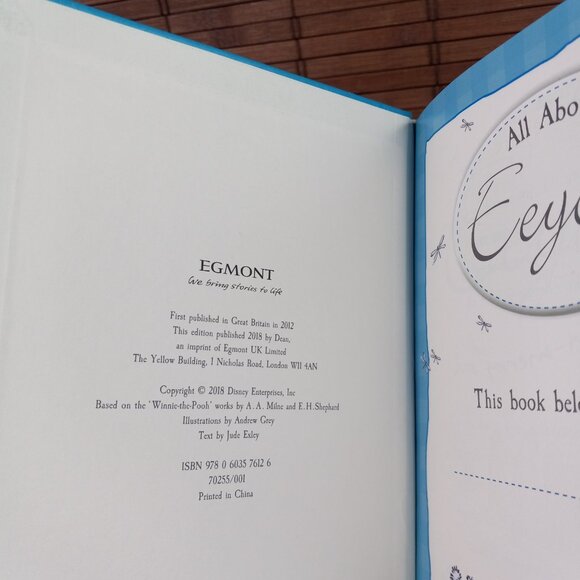 EGMONT
We bring stories to life
First published in Great Britain in 2012
This edition published 2018 by Dean,
an imprint of Egmont UK Limited
The Yellow Building, 1 Nicholas Road, London W11 4AN
Copyright © 2018 Disney Enterprises, Inc
Based on the 'Winnie-the-Pooh' works by A. A. Milne and E. H. Shephard
Illustrations by Andrew Grey
Text by Jude Exley
ISBN 978 0 6035 7612 6
70255/001
Printed in China
All Abo
Eeyo
This book belo